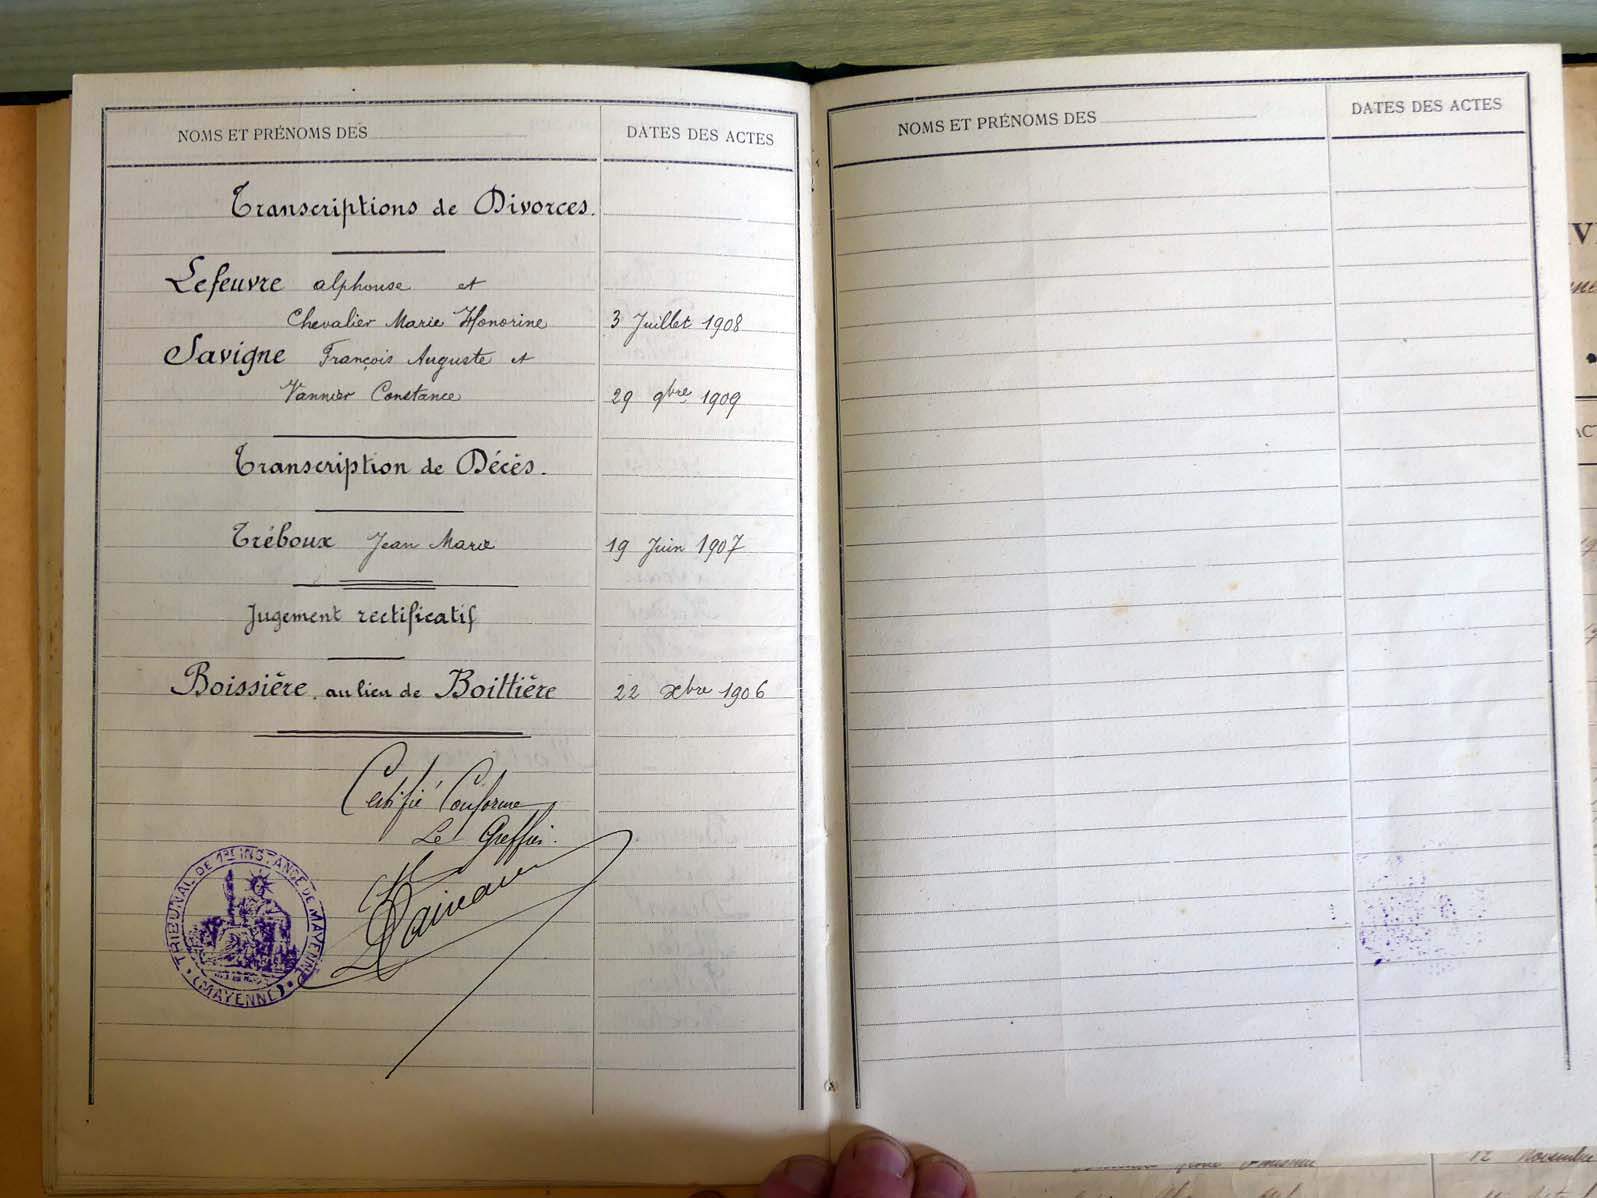 NOMS ET PRÉNOMS DES
DATES DES ACTES
Transcriptions de Divorces.
Lefeuvre Alphonse et
Chevalier Marie Honorine 3 Juillet 1908
Savigne François Auguste et
Vannier Constance 29 9bre 1909
Transcription de Décès.
Tréboux Jean Marie 19 Juin 1907
Jugement rectificatif
Boissière au lieu de Boittière 22 xbre 1906
Certifié Conforme
Le Greffier.
TRIBUNAL DE 1RE INSTANCE DE MAYENNE
(MAYENNE)
NOMS ET PRÉNOMS DES
DATES DES ACTES
12 Novembre